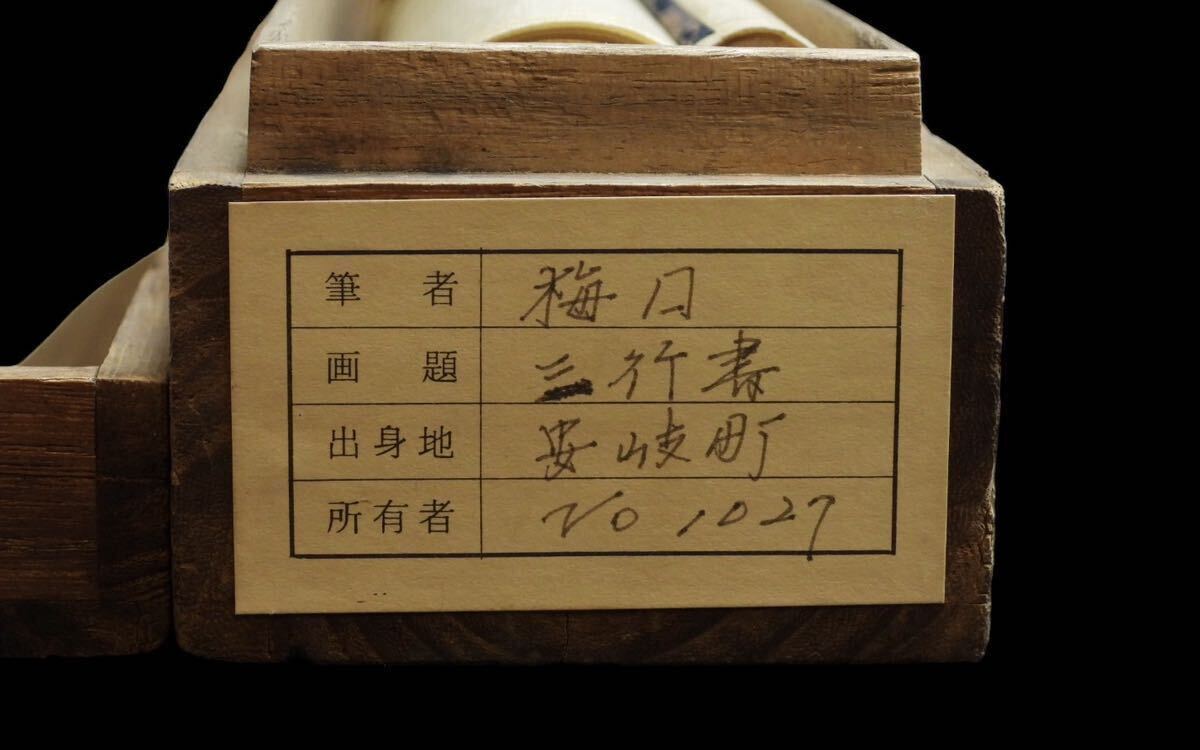 筆者 梅月
画題 三行書
出身地 安岐町
所有者 No 1027